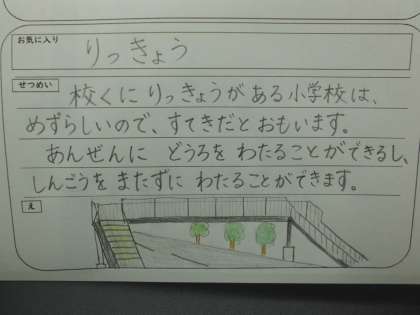 お気に入り
りっきょう
せつめい
校くに りっきょうが ある小学校は、
めずらしいので、すてきだと おもいます。
あんぜんに どうろを わたることができるし、
しんごうを またずに わたることができます。
え